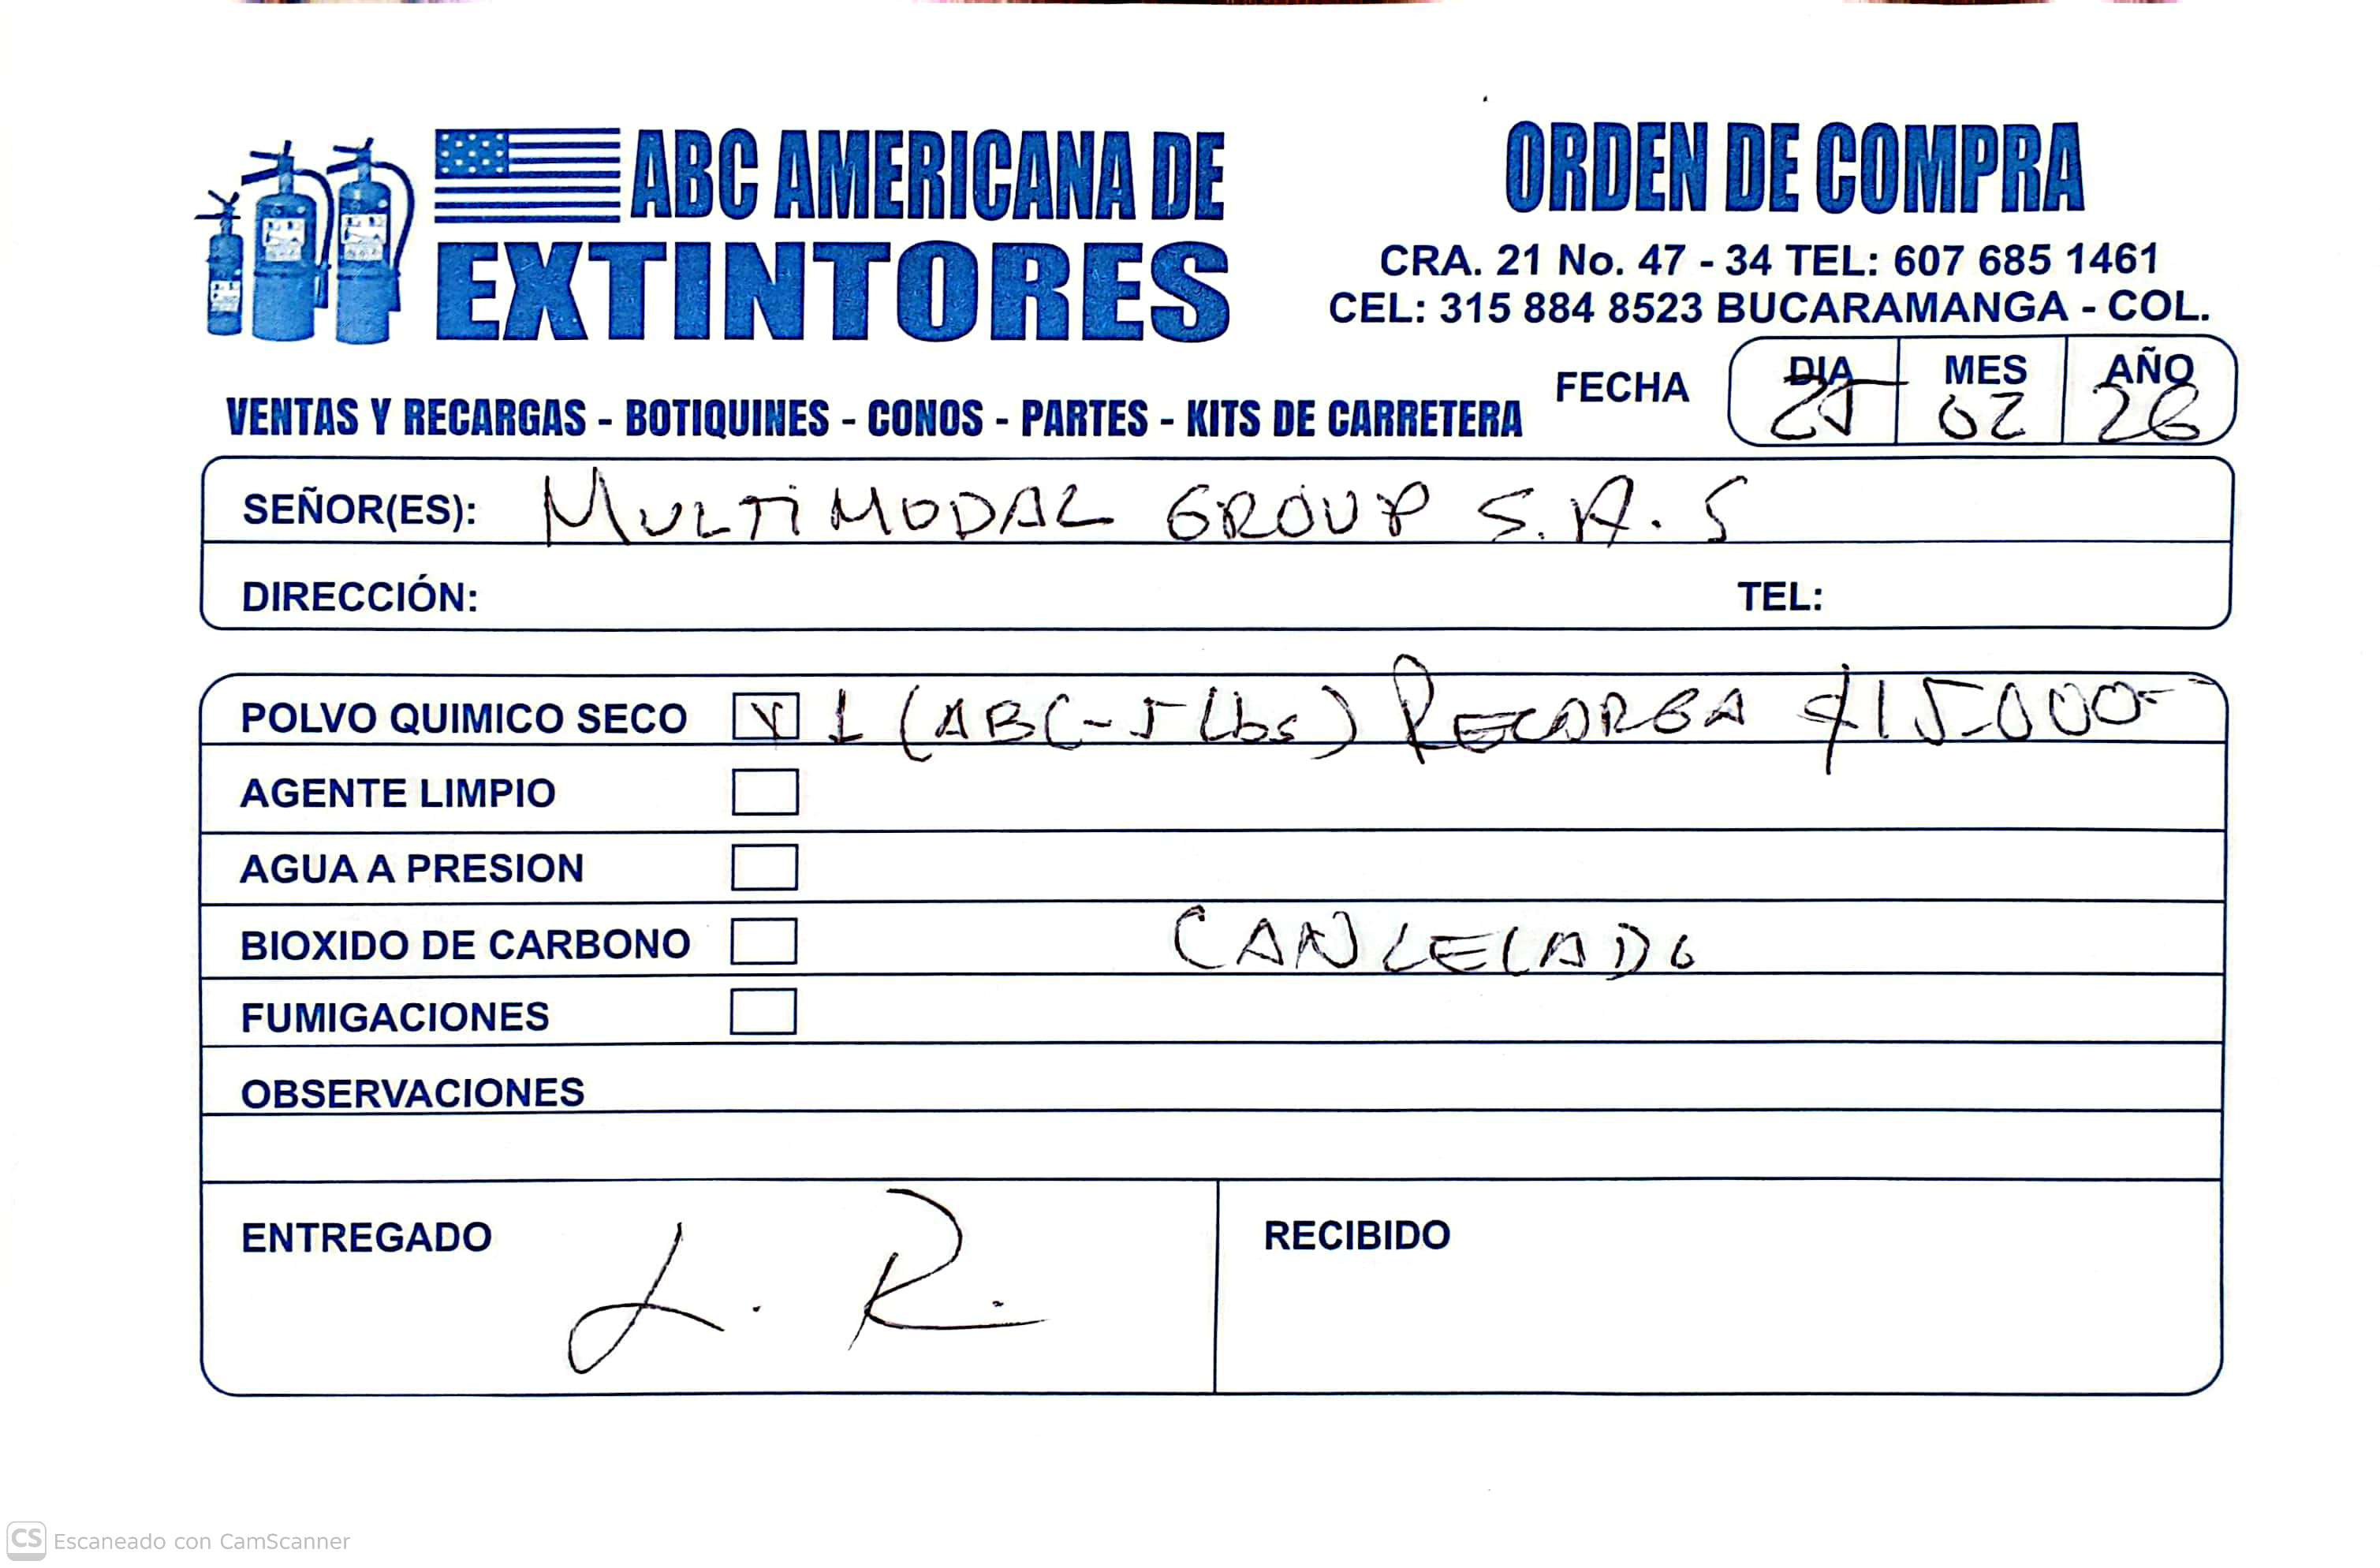 ABC AMERICANA DE
EXTINTORES
ORDEN DE COMPRA
CRA. 21 No. 47 - 34 TEL: 607 685 1461
CEL: 315 884 8523 BUCARAMANGA - COL.
VENTAS Y RECARGAS - BOTIQUINES - CONOS - PARTES - KITS DE CARRETERA
FECHA DIA MES AÑO
25 02 26
SEÑOR(ES): MULTIMODAL GROUP S.A.S
DIRECCIÓN: TEL:
POLVO QUIMICO SECO X 1 (ABC-5 Lbs) RECARGA $15.000-
AGENTE LIMPIO
AGUA A PRESION
BIOXIDO DE CARBONO CANCELADO
FUMIGACIONES
OBSERVACIONES
ENTREGADO L. R. RECIBIDO
CS Escaneado con CamScanner